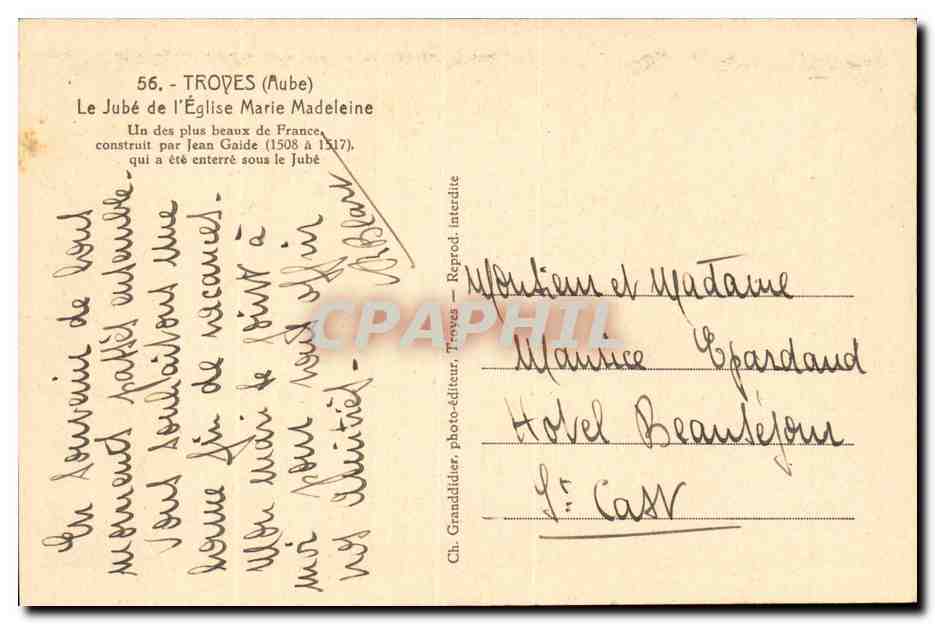 56. - TROYES (Aube)
Le Jubé de l'Église Marie Madeleine
Un des plus beaux de France,
construit par Jean Gaide (1508 à 1517),
qui a été enterré sous le Jubé
En souvenir de bons
moments passés ensemble.
Vous souhaitons une
bonne fin de vacances.
Mon mari se joint à
moi pour vous offrir
nos Amitiés.
Ch. Granddidier, photo-éditeur, Troyes — Reprod. interdite
CPAPHIL
Monsieur et Madame
Maurice Epardaud
Hôtel Beauséjour
St Cast